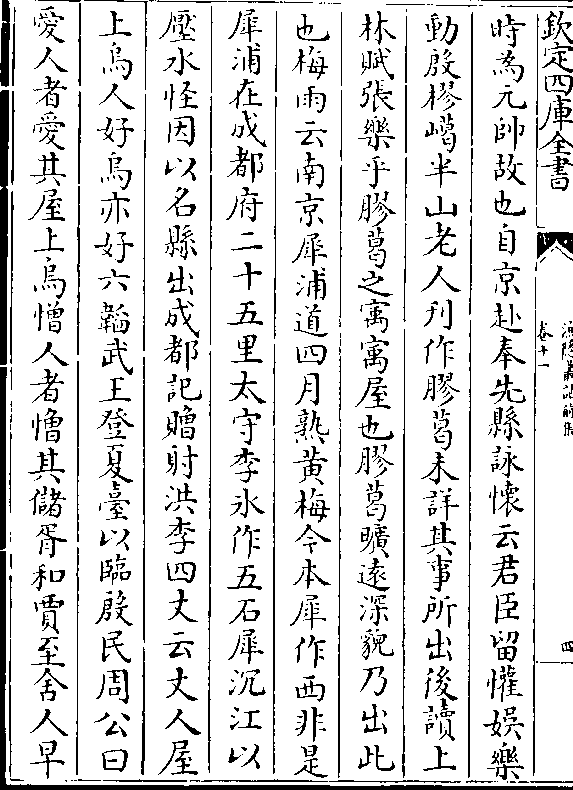 欽定四庫全書
漁隱叢話前集
卷十一
四
時為元帥故也自京赴奉先縣詠懷云君臣留懽娛樂
動殷樛嶱半山老人刋作膠葛未詳其事所出後讀上
林賦張樂乎膠葛之㝢㝢屋也膠葛曠逺深貌乃出此
也梅雨云南京犀浦道四月熟黃梅今本犀作西非是
犀浦在成都府二十五里太守李氷作五石犀沉江以
壓水怪因以名縣出成都記贈射洪李四丈云丈人屋
上烏人好烏亦好六韜武王登夏臺以臨殷民周公曰
愛人者愛其屋上烏憎人者憎其儲胥和賈至舍人早